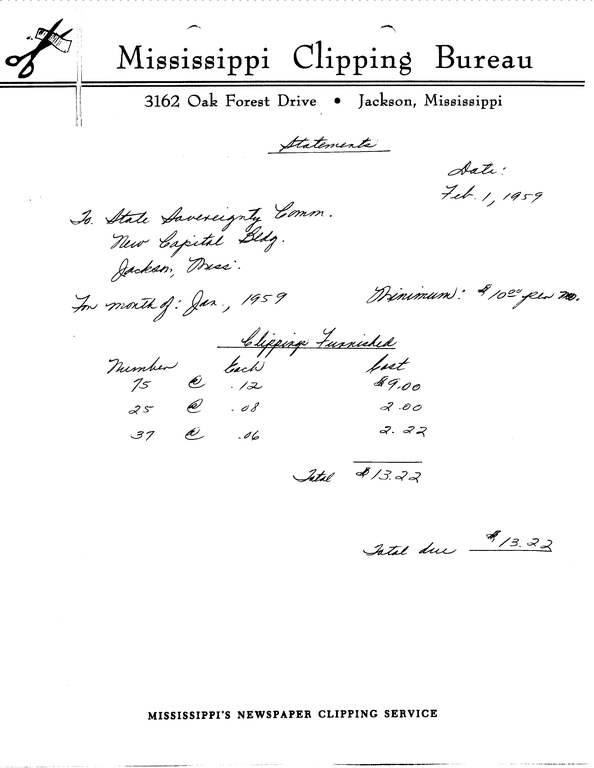 Mississippi Clipping Bureau
3162 Oak Forest Drive • Jackson, Mississippi
Statements
Date:
Feb. 1, 1959
To. State Sovereignty Comm.
New Capital Bldg.
Jackson, Miss.
For month of: Jan., 1959 Minimum: $10.00 per mo.
Clippings Furnished
Number Each Cost
75 @ .12 $9.00
25 @ .08 2.00
37 @ .06 2.22
Total $13.22
Total due $13.22
MISSISSIPPI'S NEWSPAPER CLIPPING SERVICE